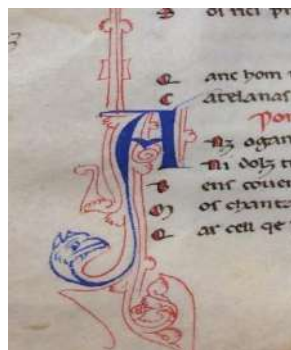 oi nci pr
E anc hom
C atelanas
Pon
A nz ogan
N i dolz t
B ens couen
M os chanta
C ar cell qe